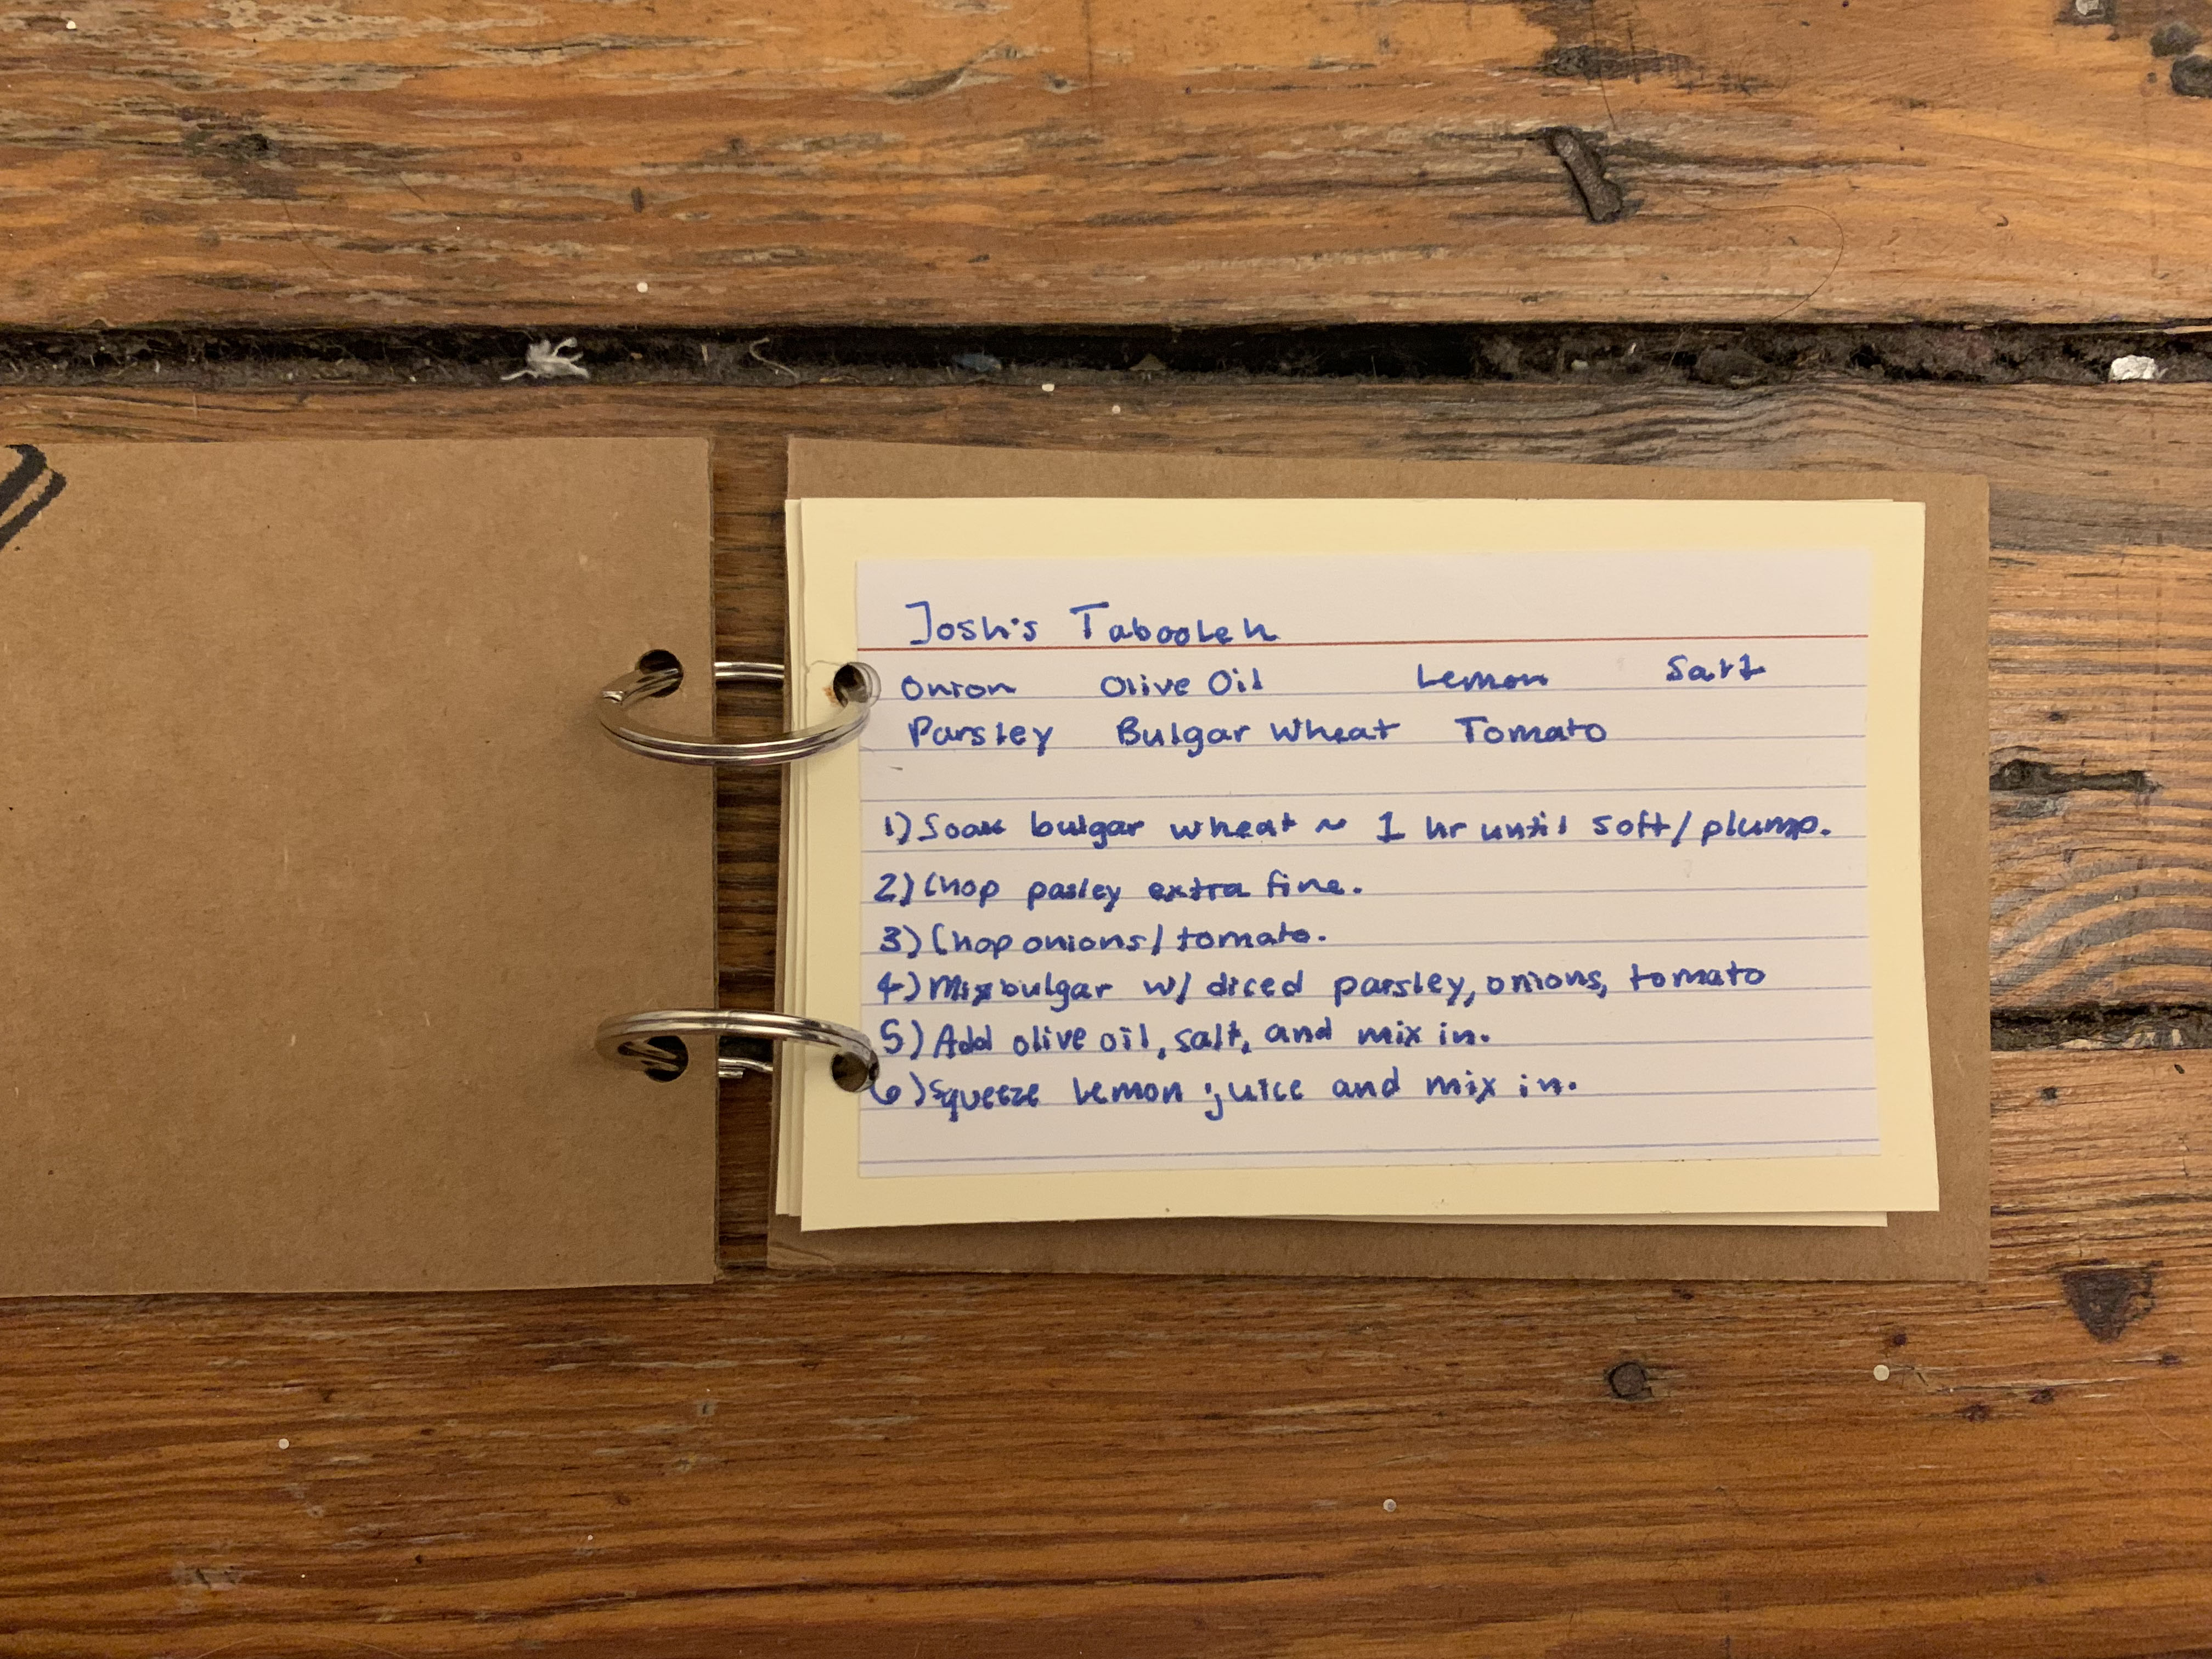 Josh's Tabooleh
Onion Olive Oil Lemon Salt
Parsley Bulgar Wheat Tomato
1) Soak bulgar wheat ~ 1 hr until soft/plump.
2) Chop pasley extra fine.
3) Chop onions/tomato.
4) Mix bulgar w/ diced parsley, onions, tomato
5) Add olive oil, salt, and mix in.
6) Squeeze lemon juice and mix in.